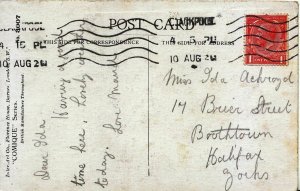 POST CARD
THIS SIDE FOR CORRESPONDENCE
THIS SIDE FOR ADDRESS
BLACKPOOL
4 15 PM
10 AUG 2
4 15 PM
10 AUG 2
Dear Ida
Having
time here. Lovely
today. Love
Miss Ida Ackroyd
17 Brier Street
Boothtown
Halifax
Yorks
"COMIQUE" Series.